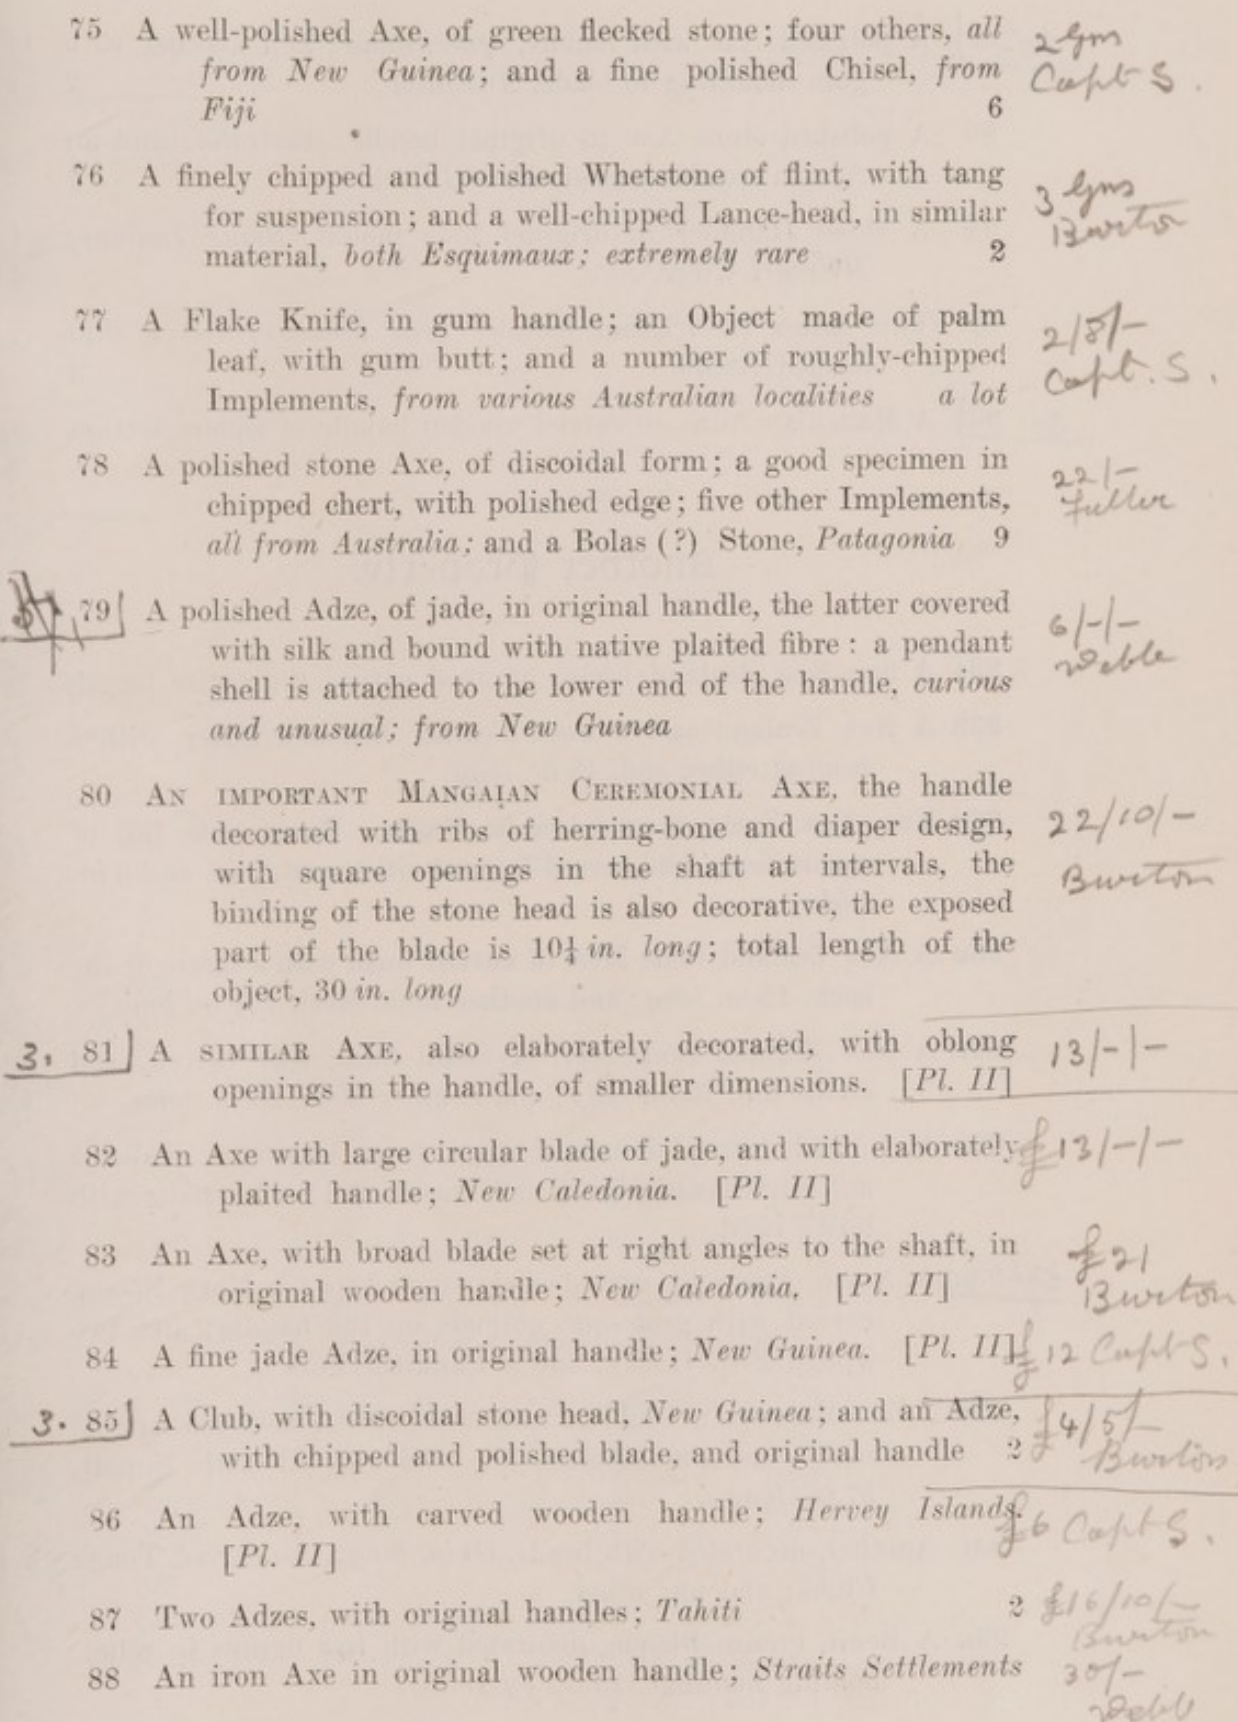 75 A well-polished Axe, of green flecked stone; four others, all 2 Gns
from New Guinea; and a fine polished Chisel, from Capt S.
Fiji 6
76 A finely chipped and polished Whetstone of flint, with tang 3 Gns
for suspension; and a well-chipped Lance-head, in similar Burton
material, both Esquimaux; extremely rare 2
77 A Flake Knife, in gum handle; an Object made of palm 2/8/-
leaf, with gum butt; and a number of roughly-chipped Capt. S.
Implements, from various Australian localities a lot
78 A polished stone Axe, of discoidal form; a good specimen in 22/-
chipped chert, with polished edge; five other Implements, Fuller
all from Australia; and a Bolas (?) Stone, Patagonia 9
79 A polished Adze, of jade, in original handle, the latter covered 6/-/-
with silk and bound with native plaited fibre: a pendant Webb
shell is attached to the lower end of the handle, curious
and unusual; from New Guinea
80 AN IMPORTANT MANGAIAN CEREMONIAL AXE, the handle
decorated with ribs of herring-bone and diaper design, 22/10/-
with square openings in the shaft at intervals, the Burton
binding of the stone head is also decorative, the exposed
part of the blade is 10¼ in. long; total length of the
object, 30 in. long
3. 81 A SIMILAR AXE, also elaborately decorated, with oblong 13/-/-
openings in the handle, of smaller dimensions. [Pl. II]
82 An Axe with large circular blade of jade, and with elaborately £13/-/-
plaited handle; New Caledonia. [Pl. II]
83 An Axe, with broad blade set at right angles to the shaft, in £21
original wooden handle; New Caledonia. [Pl. II] Burton
84 A fine jade Adze, in original handle; New Guinea. [Pl. II] £12 Capt S.
3. 85 A Club, with discoidal stone head, New Guinea; and an Adze, £4/5/-
with chipped and polished blade, and original handle 2 Burton
86 An Adze, with carved wooden handle; Hervey Islands. £6 Capt S.
[Pl. II]
87 Two Adzes, with original handles; Tahiti 2 £16/10/-
Burton
88 An iron Axe in original wooden handle; Straits Settlements 30/-
Webb